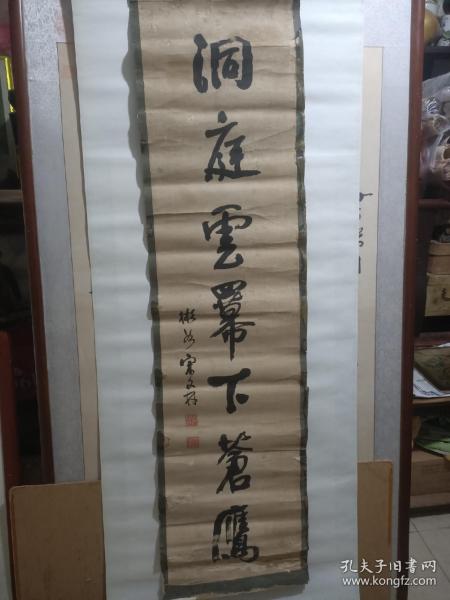 洞庭雲幕下蒼鷹
孔夫子旧书网
www.kongfz.com